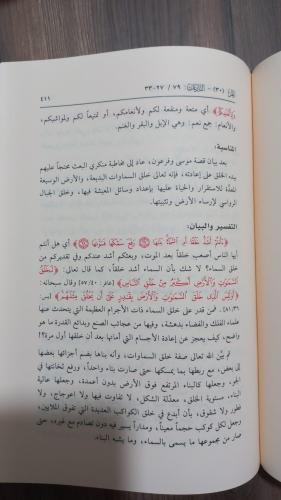 الجزء (٣٠) - النازعات: ٧٩ / ٢٧-٣٣
٤١١
أي متعة ومنفعة لكم ولأنعامكم، أو تمتيعاً لكم ولمواشيكم،
والأنعام: جمع نعم: وهي الإبل والبقر والغنم.
المناسبة:
بعد بيان قصة موسى وفرعون، عاد إلى مخاطبة منكري البعث محتجاً عليهم
ببدء الخلق على إعادته، فإنه تعالى خلق السماوات البديعة، والأرض الوسيعة
المعدَّة للاستقرار والحياة عليها بإعداد وسائل المعيشة فيها، وخلق الجبال
الرواسي لإرساء الأرض وتثبيتها.
التفسير والبيان:
﴿ءَأَنتُمْ أَشَدُّ خَلْقًا أَمِ السَّمَاءُ بَنَاهَا ﴿٢٧﴾ رَفَعَ سَمْكَهَا فَسَوَّاهَا ﴿٢٨﴾﴾ أي هل أنتم
أيها الناس أصعب خلقاً بعد الموت، وبعثكم أشد عندكم وفي تقديركم من
خلق السماء؟ لا شك بأن السماء أشد خلقاً، كما قال تعالى: ﴿لَخَلْقُ
السَّمَاوَاتِ وَالْأَرْضِ أَكْبَرُ مِنْ خَلْقِ النَّاسِ﴾ [غافر: ٤٠/ ٥٧] وقال سبحانه:
﴿أَوَلَيْسَ الَّذِي خَلَقَ السَّمَاوَاتِ وَالْأَرْضَ بِقَادِرٍ عَلَىٰ أَن يَخْلُقَ مِثْلَهُم﴾ [يس:
٣٦/ ٨١]. فمن قدر على خلق السماء ذات الأجرام العظيمة التي يتحدث عنها
علماء الفلك والفضاء بدهشة، وفيها من عجائب الصنع وبدائع القدرة ما هو
واضح، كيف يعجز عن إعادة الأجسام التي أماتها بعد أن خلقها أول مرة؟!
ثم بيَّن الله تعالى صفة خلق السماوات، وأنه بناها بضم أجزائها بعضها
إلى بعض، مع ربطها بما يمسكها حتى صارت بناء واحداً، ورفع ثخانتها في
الجو، وجعلها كالبناء المرتفع فوق الأرض بدون أعمدة، وجعلها عالية
البناء، مستوية الخلق، معدَّلة الشكل، لا تفاوت فيها ولا اعوجاج، ولا
فطور ولا شقوق، بأن أبدع في خلق الكواكب العديدة التي تفوق الملايين،
وجعل لكل كوكب حجماً معيناً، ومداراً يسير فيه دون تصادم مع غيره، حتى
صار من مجموعها ما يسمى بالسماء، وما يشبه البناء.